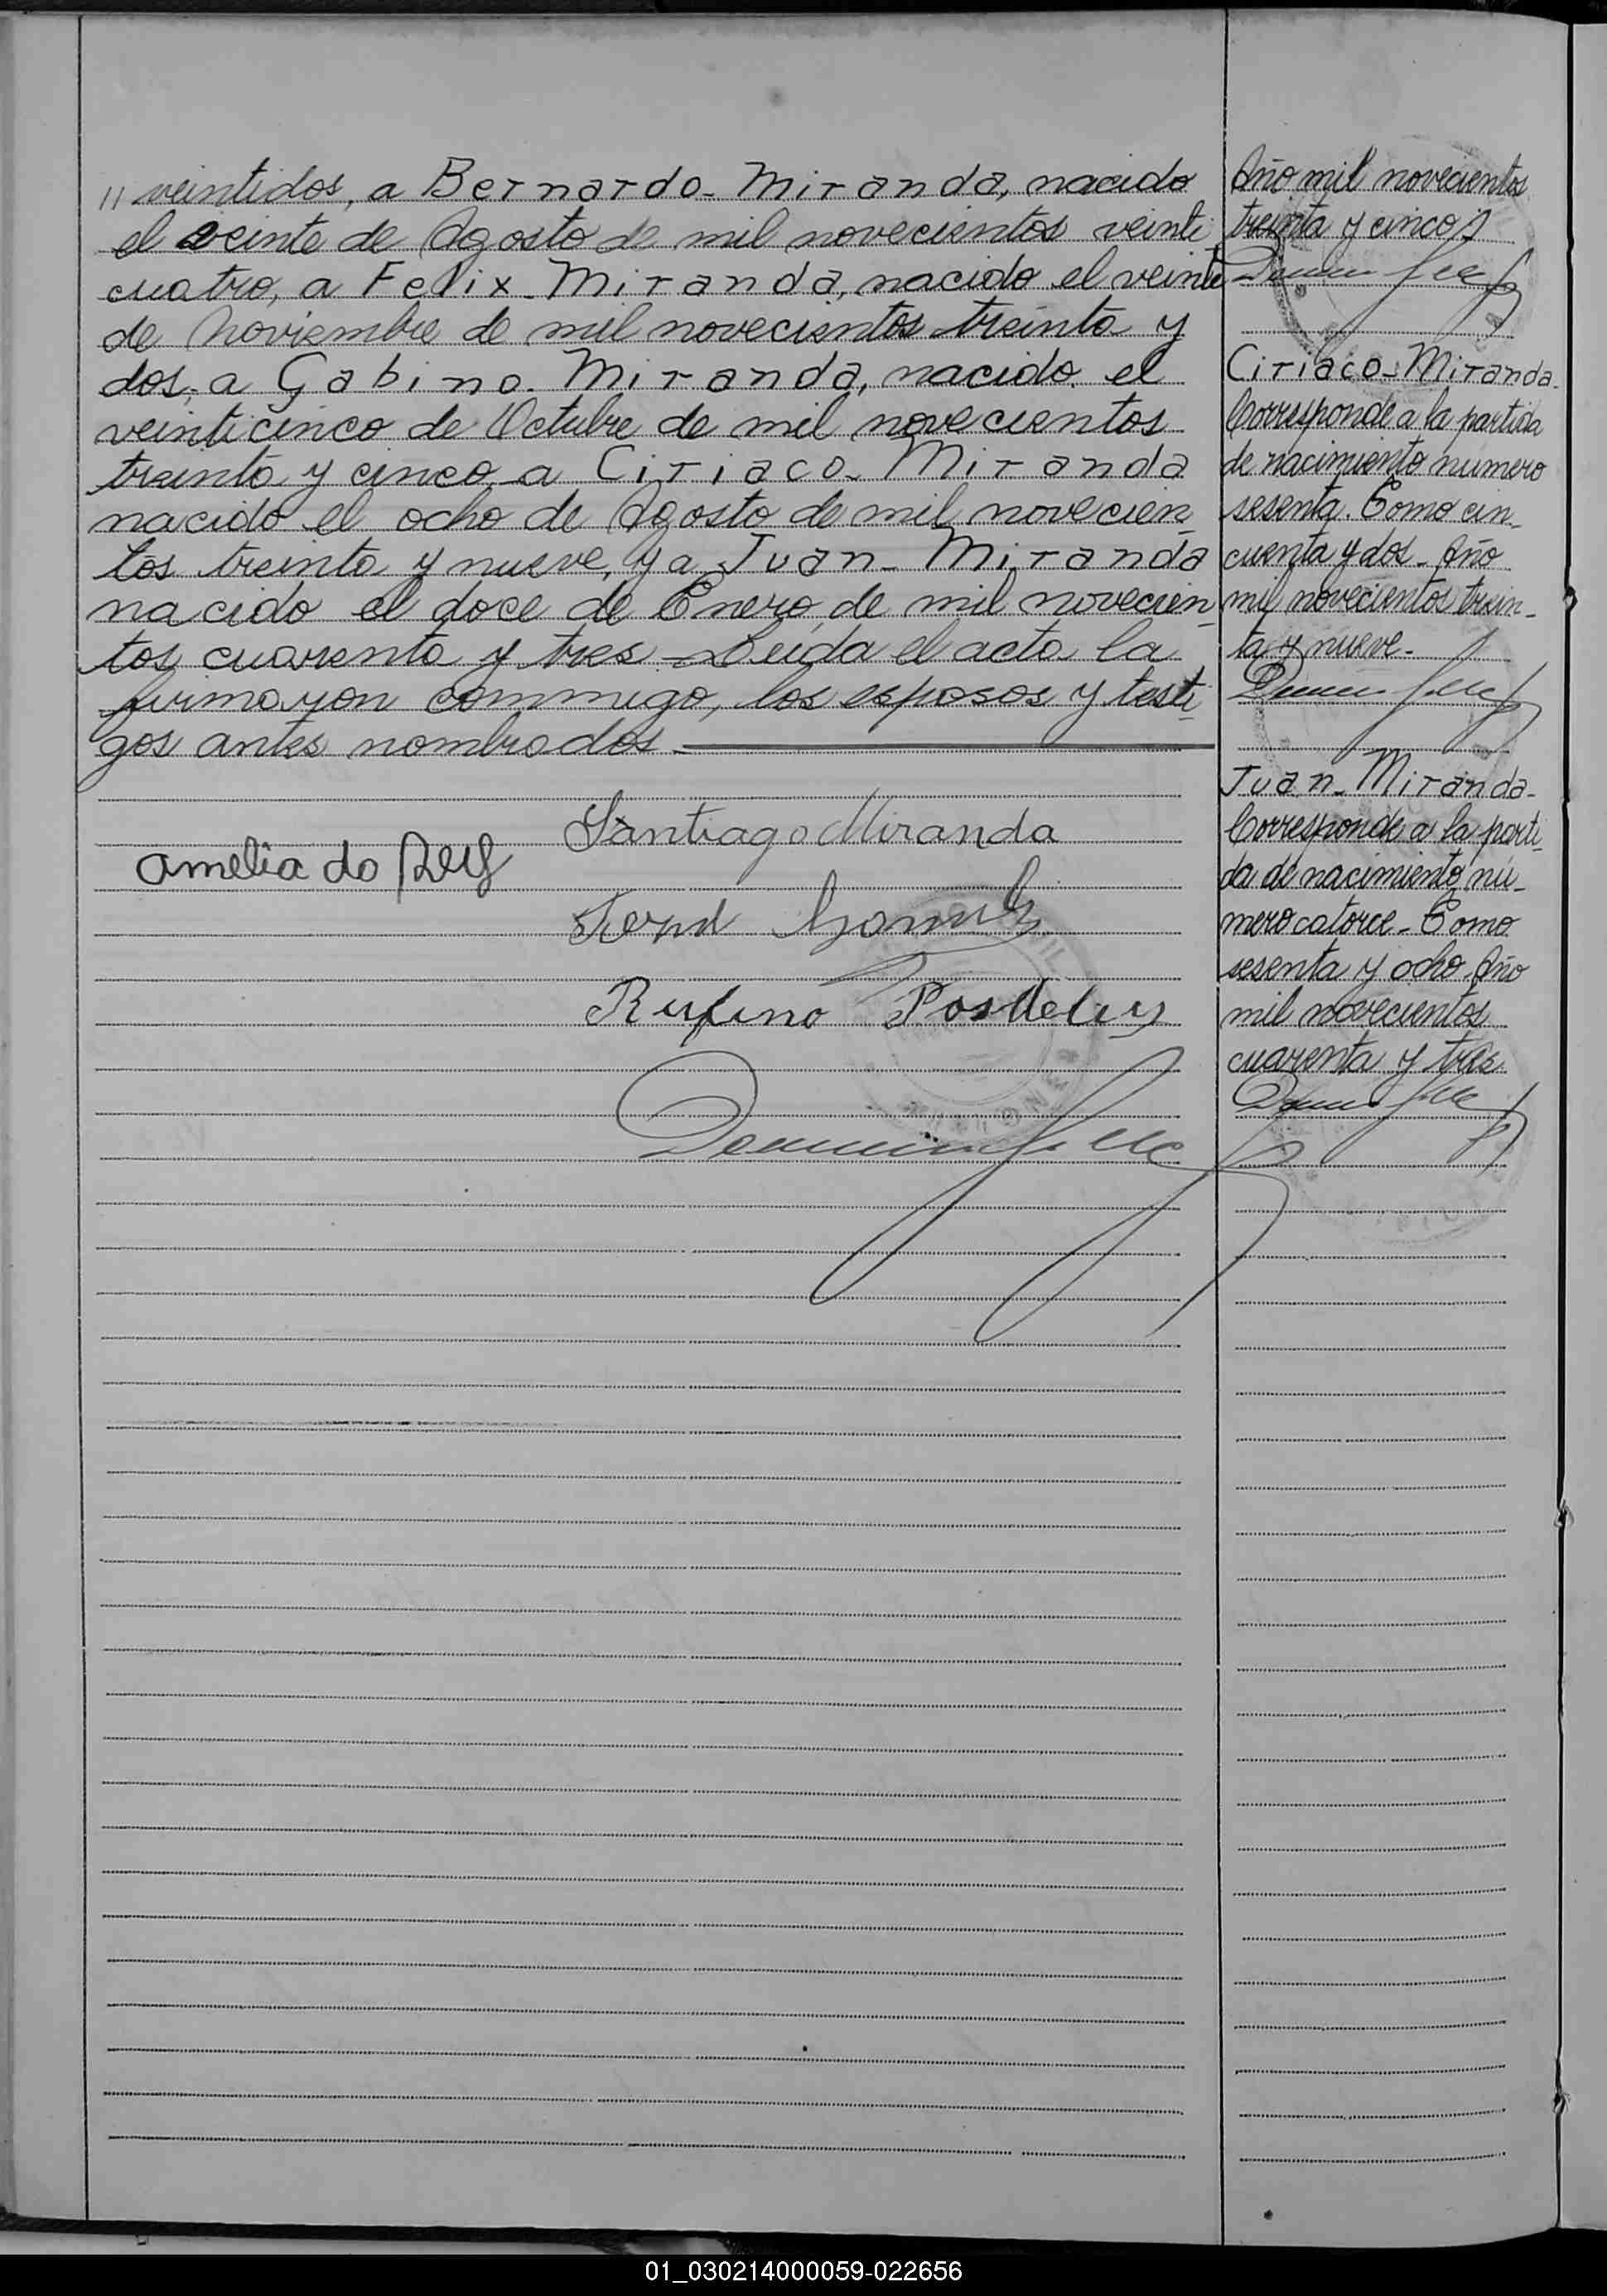 " veintidos, a Bernardo - Miranda, nacido
el veinte de Agosto de mil novecientos veinti-
cuatro, a Felix - Miranda, nacido el veinte
de Noviembre de mil novecientos treinta y
dos, a Gabino - Miranda, nacido el
veinticinco de Octubre de mil novecientos
treinta y cinco, a Ciriaco - Miranda
nacido el ocho de Agosto de mil novecien-
tos treinta y nueve, y a Juan - Miranda
nacido el doce de Enero de mil novecien-
tos cuarenta y tres - Leida el acta la
firmaron conmigo, los esposos y testi-
gos antes nombrados
Santiago Miranda
Amelia do Rey
Rufino
Año mil novecientos
treinta y cinco
Ciriaco - Miranda -
Corresponde a la partida
de nacimiento numero
sesenta. Tomo cin-
cuenta y dos - Año
mil novecientos trein-
ta y nueve -
Juan - Miranda -
Corresponde a la parti-
da de nacimiento nú-
mero catorce - Tomo
sesenta y ocho. Año
mil novecientos
cuarenta y tres
01_030214000059-022656